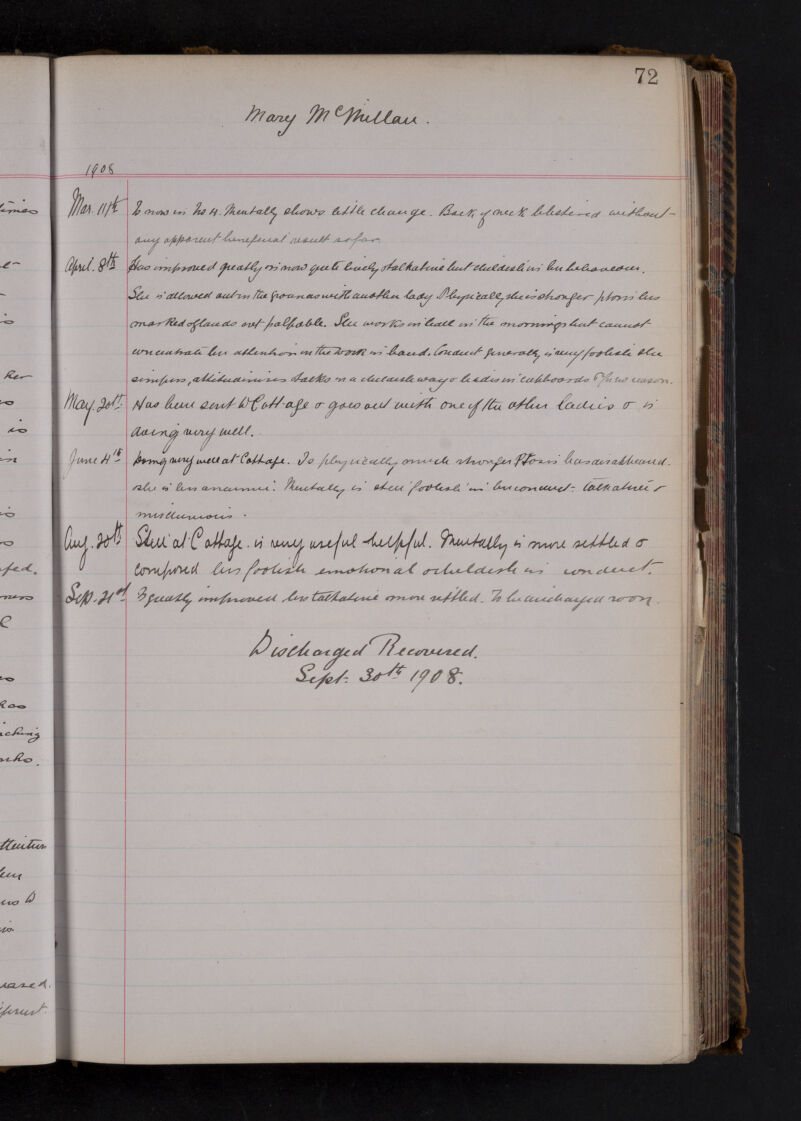 72
Mary McMillan.
1908
Mar. 11th Is now in No 4. Mentally shows little change. Back of neck blistered without
any apparent beneficial result so far.
April. 8th Has improved greatly is now quite lively & talkative but childish in her behaviour.
She is allowed out in the grounds with another lady Physically she is stronger ptosis less
marked glands not palpable. She works in hall in the mornings but cannot
concentrate her attention on the work in hand. Conduct generally is very foolish she
simpers, attitudinises talks in a childish way & hides in cupboards for no reason.
May. 20th Has been sent to Cottage & goes out with one of the other ladies & is
doing very well.
June 4th Doing very well at Cottage. Is physically much stronger Ptosis has disappeared.
she is less anaemic. Mentally is still foolish in her conduct - talkative &
mischievous.
Aug. 20th Still at Cottage. is very useful & helpful. Mentally is more settled &
composed less foolish emotional & childish in conduct.
Sep. 21st Is greatly improved less talkative & more settled. To be discharged soon.
Discharged Recovered.
Sept. 30th 1908.